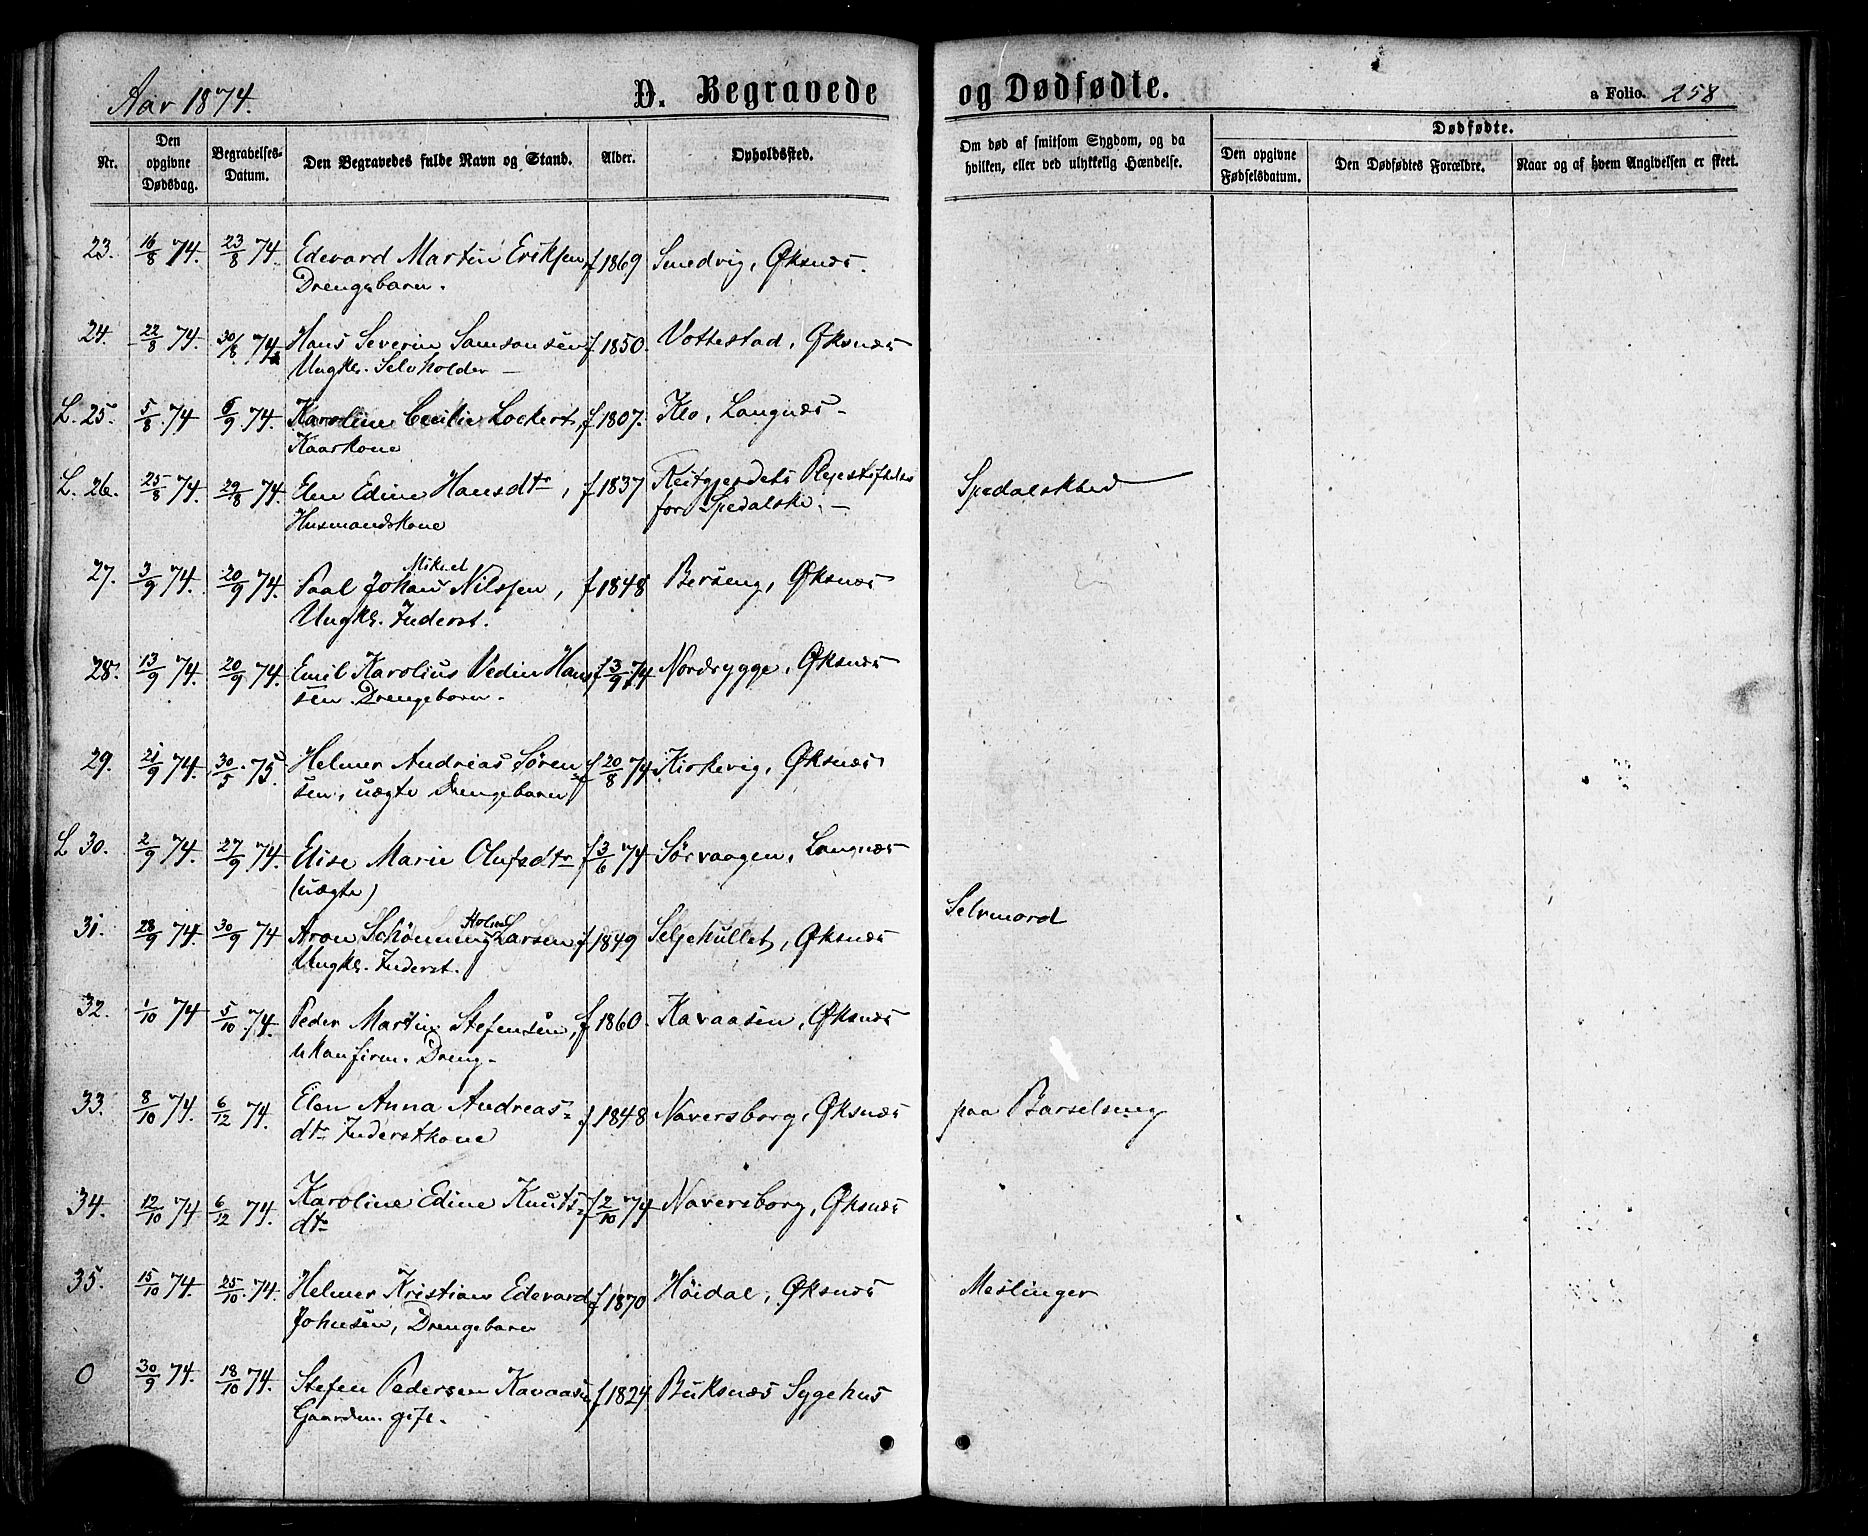 Aar 1874.
D. Begravede og Dødfødte.
a Folio. 258
Nr.
Den opgivne Dødsdag.
Begravelses-Datum.
Den Begravedes fulde Navn og Stand.
Alder.
Opholdssted.
Om død af smitsom Sygdom, og da hvilken, eller ved ulykkelig Hændelse.
Dødfødte.
Den opgivne Fødselsdatum.
Den Dødfødtes Forældre.
Naar og af hvem Angivelsen er skeet.
23. 16/8 74. 23/8 74. Edevard Martin Eriksen, f 1869 Smedvig, Øksnæs.
Drengebarn.
24. 22/8 74. 30/8 74. Hans Severin Samsonsen f 1850. Vottestad, Øksnæs
Ungkl. Selvholder –
L. 25. 5/8 74 6/9 74. Karoline Cecilie Lockert, f 1807. Klo, Langnæs –
Kaarkone
L. 26. 25/8 74. 29/8 74. Elen Edine Hansdtr, f 1837 Reitgjerdets Plejestiftelse Spedalskhed
Husmandskone for Spedalske. –
Mikael
27. 3/9 74. 20/9 74. Paal Johan Nilssen, f 1848 Børøeng, Øksnæs
Ungkl. Inderst.
28. 13/9 74. 20/9 74. Emil Karolius Vedin Han f 3/9 74 Nordrygge, Øksnæs
sen. Drengebarn.
29. 21/9 74. 30/5 75. Helmer Andreas Søren f 20/8 74. Kirkevig, Øksnæs
sen, uægte Drengebarn
L 30. 2/9 74. 27/9 74. Elise Marie Olufsdtr f 3/6 74 Sørvaagen, Langnæs
(uægte)
Holm
31. 28/9 74. 30/9 74 Aron Schönning Larsen f 1849 Seljehullet, Øksnæs Selvmord
Ungkl. Inderst.
32. 1/10 74 5/10 74. Peder Martin Stefensen, f 1860. Kavaasen, Øksnæs
ukonfirm. Dreng.
33. 8/10 74. 6/12 74. Elen Anna Andreas= f 1848 Naversborg, Øksnæs paa Barselseng
dtr Inderstkone
34. 12/10 74 6/12 74. Karoline Edine Knuts= f 2/10 74 Naversborg, Øksnæs
dtr
35. 15/10 74. 25/10 74. Helmer Kristian Edevard f 1870 Höidal, Øksnæs Meslinger
Johnsen, Drengebarn
0 30/9 74. 18/10 74. Stefen Pedersen Kavaasen f 1824. Buksnæs Sygehus
Gaardm. gift.